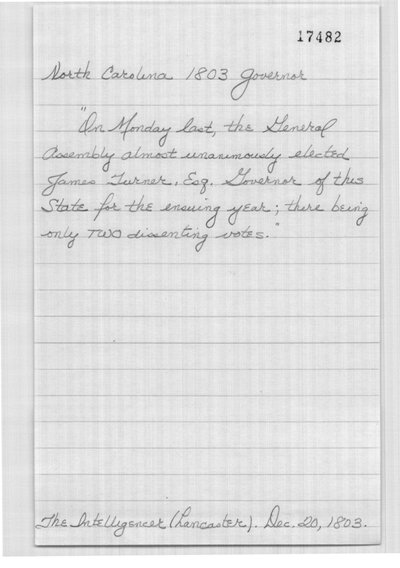 17482
North Carolina 1803 Governor
"On Monday last, the General
Assembly almost unanimously elected
James Turner, Esq. Governor of this
State for the ensuing year; there being
only TWO dissenting votes."
The Intelligencer (Lancaster). Dec. 20, 1803.